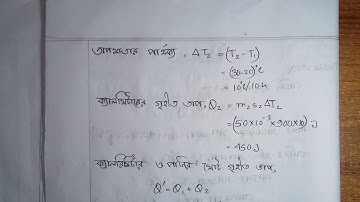 তাপমাত্রার পার্থক্য, ΔT₂ = (T₂ - T₁)
= (30-20)°C
= 10°C/10K
ক্যালরিমিটারের গৃহীত তাপ, Q₂ = m₂s₂ΔT₂
= (50×10⁻³×900×10) J
= 450 J
ক্যালরিমিটার ও পানির মোট গৃহীত তাপ,
Q' = Q₁ + Q₂